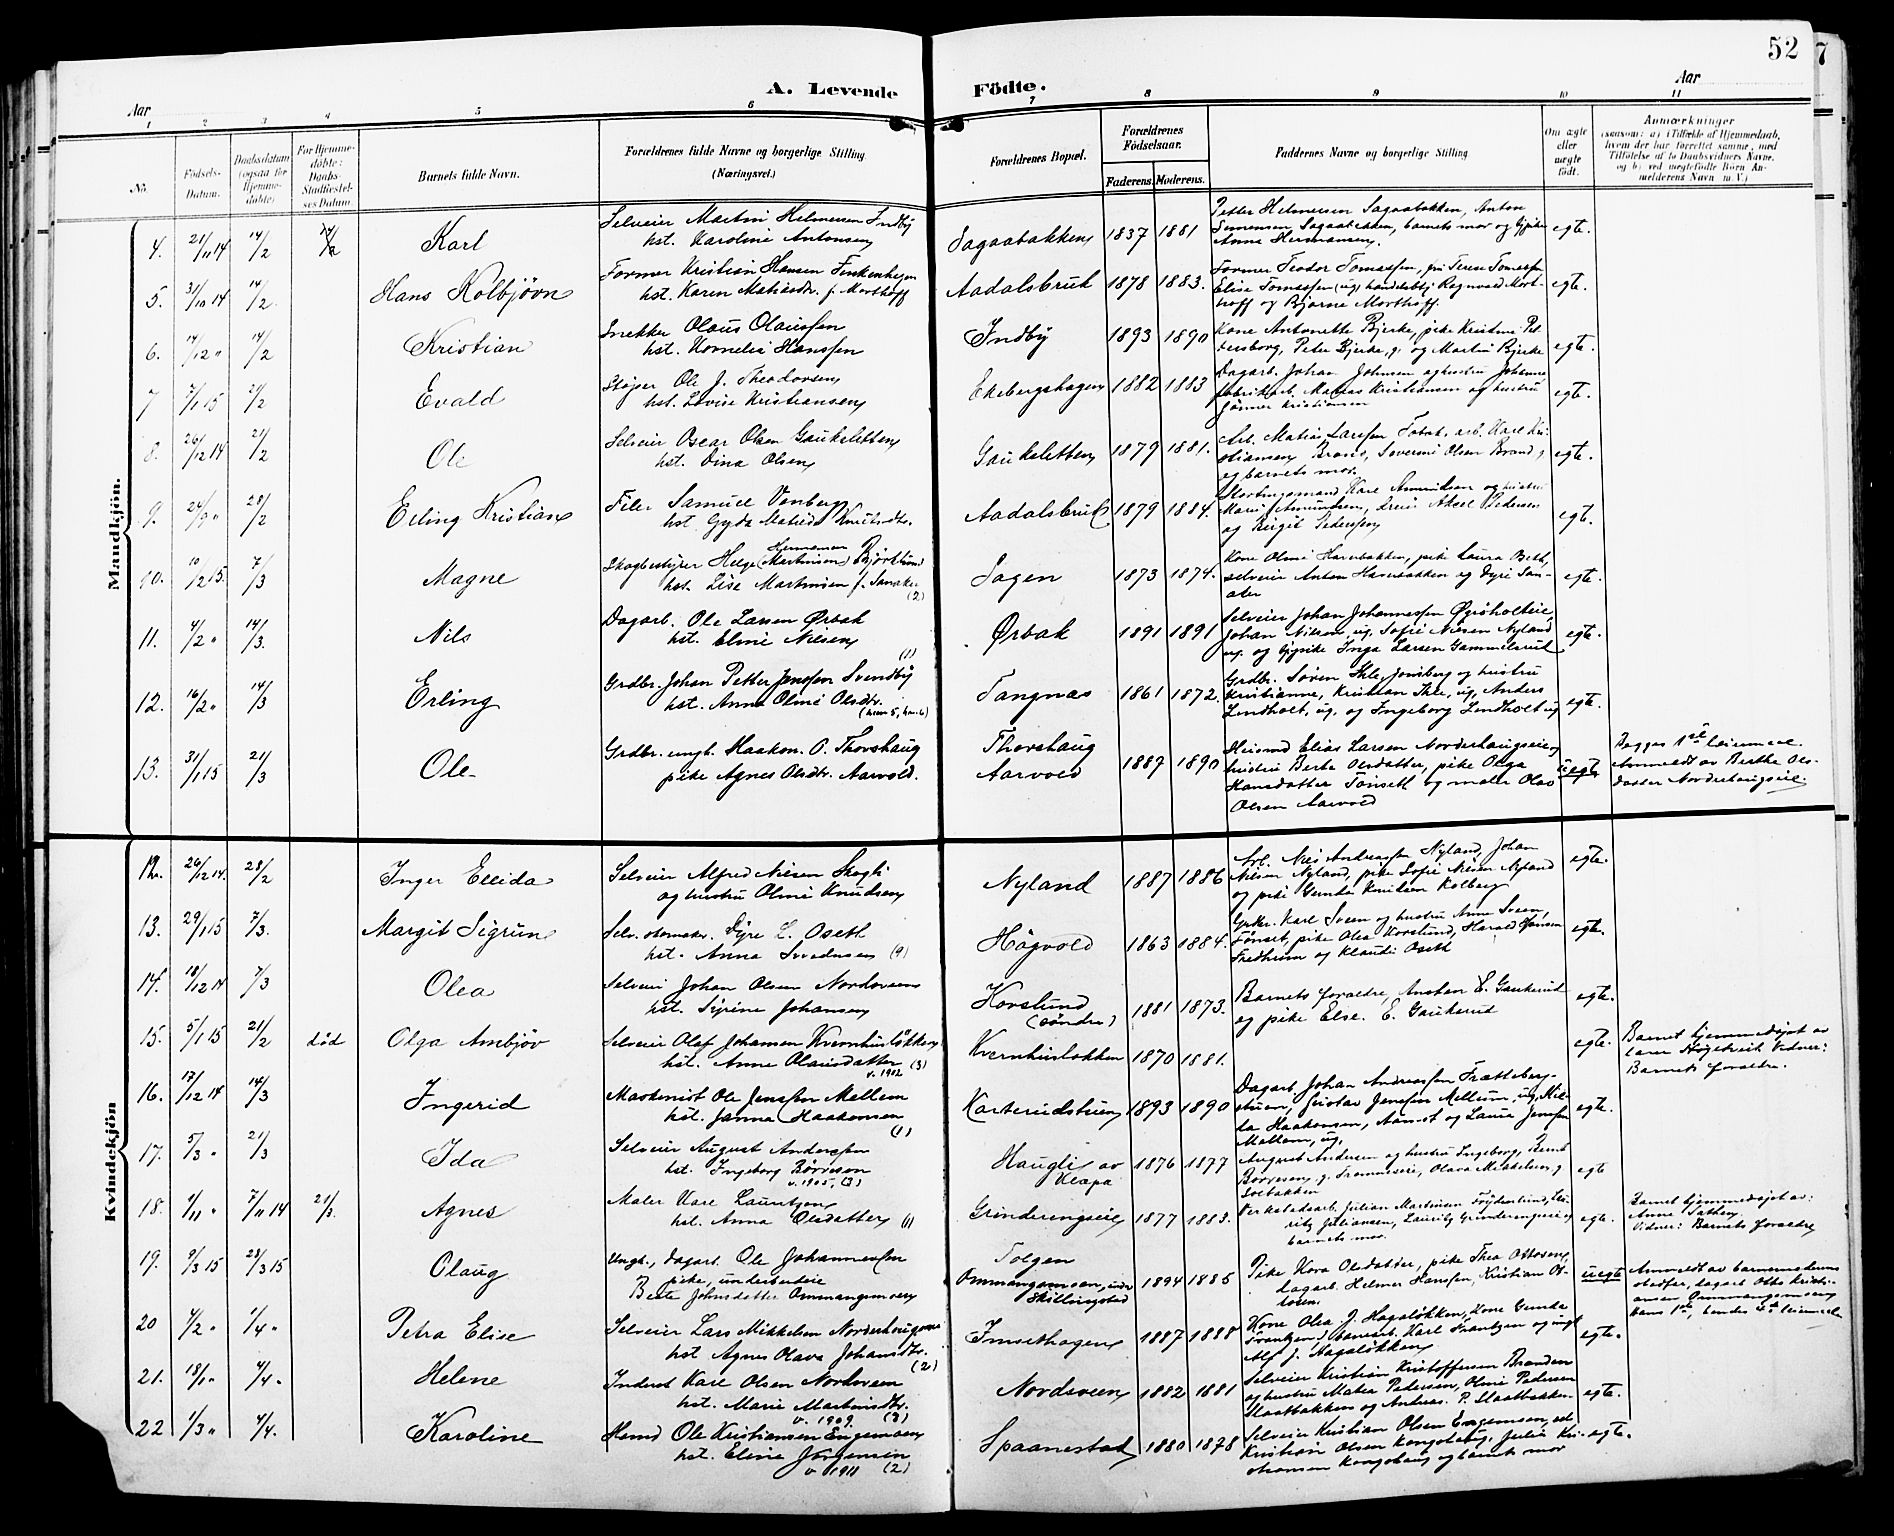 52
7
A. Levende Födte.
Aar
Aar
1 2 3 4 5 6 7 8 9 10 11
No.
Födsels-Datum.
Daabsdatum (ogsaa for Hjemmedøbte)
For Hjemmedøbte: Daabs-Stadfæstelses Datum.
Barnets fulde Navn.
Forældrenes fulde Navne og borgerlige Stilling (Næringsvei.)
Forældrenes Bopæl.
Forældrenes Födselsaar.
Faderens. Moderens.
Faddernes Navne og borgerlige Stilling
Om ægte eller uægte födt.
Anmærkninger
(saasom: a) i Tilfælde af Hjemmedaab, hvem der har forrettet samme, med Tilföielse af to Daabsvidners Navne, og b) ved uegtefödte Börn Anmelderens Navn m. V.)
Mandkjön.
4. 21/11 14 14/2 Karl
Selveier Martin Helmersen Indby
hst. Karoline Antonsen
Sagaabakken 1837 1881
Petter Helmersen Sagaabakken, Anton
Simensen Sagaabakken, barnets mor og
Anna Hermansen.
egte.
5. 31/10 14 14/2. Hans Kolbjörn
Former Kristian Hansen Finkenhagen
hst. Karen Matiasdtr. f. Morthoff
Aadalsbruk 1878 1883.
Former Teodor Tomassen, fru Terese Tomassen
Elise Tomassen (ug) handelsbtj. Regnvald Mort-
hoff og Bjarne Morthoff.
egte.
6. 14/12 " 14/2 Kristian
Snekker Olaus Olaussen
hst. Kornelia Hanssen
Indby 1893 1890
Kone Antonette Bjerke, pike Kristine Pet-
tersborg, Peter Bjerke, g. og Martin Bjerke
egte.
7 7/1 15 21/2 Evald
Støper Ole J. Theodorsen
hst. Lovise Kristiansen
Ekebergshagen 1882 1883
Dagarb. Johan Johnsen og hustru Johanne
fabrikarb. Matias Kristiansen og hustru
Kristiansen
egte.
8. 26/12 14 21/2 Ole
Selveier Oscar Olsen Gaukeletten
hst. Dina Olsen
Gaukeletten 1879 1881.
Arb. Matias Larssen Fabak, arb. Karl Kri-
stiansen Brand, Severine Olsen Brand,
og barnets mor.
egte.
9. 24/9 " 28/2 Erling Kristian
Filer Samuel Vonberg
hst. Gyda Matilde Knutsdtr.
Aadalsbruk 1879 1884.
Stortingsmand Karl Amundsen og hustru
Marie Amundsen, Aksel Pedersen
og Birgit Pederssen
egte.
10. 10/2 15. 7/3 Magne
Skogbestyrer Helge (Martinsen) Hermansen Björklund
hst. Lise Martinsen f. Sanaker
(2)
Sagen 1873 1874.
Kone Oline Havebakken, pike Laura Beth,
selveier Anton Havebakken og Dyre San-
aker
egte.
11. 4/2 " 14/3. Nils
Dagarb. Ole Larsen Ørbak
hst. Eline Nilsen
(1)
Ørbak 1891 1891
Selveier Johan Johannessen
Johan Nilsen, ug. Sofie Nilsen Nyland,
ug. og tjpike Inga Larsen Gammelsrud
egte.
12. 16/2 " 14/3 Erling
Grdbr. Johan Petter Jenssen Svendby
hst. Anna Oline Olsdtr.
Tangnæs 1861 1872.
Grdbr. Søren Ihle, Jönsberg og hustru
Kristianne, Kristian Ihle, ug, Anders
Lindholt, ug. og Ingeborg Lindholt ug
egte.
13. 31/1 15 21/3 Ole
Grdbr. ungk. Haakon O. Thorshaug
pike Agnes Olsdtr. Aarvold.
Thorshaug
Aarvold 1887 1890
Elias Larsen Norderhaugseie,
hustru Berte Olsdatter, pike Olga
Hansdatter Tönseth og maler Olav
Olsen Aarvold
uegte
Begges 1ste leiermaal.
Anmeldt av Berthe Ols-
datter Norderhaugseie.
Kvindekjön
12. 26/12 14. 28/2 Inger Elida
Selveier Alfred Nilsen Skogli
og hustru Oline Knudsen
Nyland 1887 1886
Arb. Nils Andreassen Nyland, Johan
Nilsen Nyland, pike Sofie Nilsen Nyland
og pike Gunda Knudsen Kolberg
egte.
13. 29/1 15 7/3. Margit Sigrun
Selv. skomaker. Dyre L. Oseth
hst. Anna Svendsen (4)
Högvold 1863 1884.
Karl Sveen og hustru Anne Sveen,
Tönset, pike Olea Korslund, Harald Hansen
Fredheim og Klaudi Oseth
egte.
14. 18/12 14 7/3 Olea
Selveier Johan Olsen Nordsveen
hst. Sirine Johansen
Korslund
(söndre) 1881 1873.
Barnets forældre, Anstan E. Gaukerud
og pike Else. E. Gaukerud
egte.
15. 5/1 15 21/2 död Olga Ambjör
Selveier Olaf Johansen Kvernhusløkken
hst. Anne Olausdatter (3)
v. 1902
Kvernhusløkken 1870 1881.
egte.
Barnet hjemmedøpt av
lærer Høgetveit Vidner:
Barnets forældre.
16. 17/12 14 14/3 Ingerid
Maskinist Ole Jenssen Mellem
hst. Janna Haakonsen
(1)
Karterudstuen 1893 1890
Dagarb Johan Andreassen Frætteberg-
stuen, Gustav Jenssen Mellum, ug, Hil-
da Haakonsen, Aamot og Laura Jenssen
Mellom, ug.
egte.
17. 5/3 " 21/3 Ida
Selveier August Anderssen
hst. Ingeborg Börresen
v. 1905. (3)
Haugli av
Klapa 1876 1877
August Andersen og hustru Ingeborg, Bernt
Börresen, g. Olava Mikkelsen g.
Solbakken
egte
18. 1/11 " 7/11 14 21/3. Agnes
Maler Karl Lauritzen
hst. Anna Olsdatter (1)
Grinderengseie 1877 1883.
Verkstedsarb. Julian Martinsen Frydenlund, Lau-
ritz Juliansen, Lauritz Grinderengseie og
barnets mor.
egte.
Barnet hjemmedøpt av:
Anne Sæther.
Vidner: Barnets forældre
19. 9/3 15 28/3 15 Olaug
Ungk., dagarb. Ole Johannessen
pike, underbudeie
Berte Johnsdatter Ommangsmoen
Tolgen
Ommangsmoen, under
Skillingstad 1894 1885
Pike Kora Olsdatter, pike Thea Ottosen,
dagarb. Helmer Hanssen, Kristian Ot-
tosen.
uegte
Anmeldt av barnemoderens
stedfar, dagarb Otto Kristi-
ansen Ommangsmoen
hans 1ste, hendes leiermaal
20 4/2 " 1/4 " Petra Elise
Selveier Lars Mikkelsen Norderhaugmoe
hst Agnes Olava Johansdtr.
(2)
Imsethagen 1887 1888
Kone Olea J. Hagaløkken, kone Gunda
Frantzen, banearb. Karl Frantzen og ungk
Alf J. Hagaløkken
egte.
21. 18/1 " 4/4 " Helene
Inderst Karl Olsen Nordsveen
hst. Marie Martinsdtr.
v. 1909. (3)
Nordsveen 1882 1881
Selveier Kristian Kristoffersen Branden
og hustru Matea Pedersen, Oline Pedersen
Slaatbakken og Andreas. P. Slaatbakken
egte.
22 1/3 " 4/4. Karoline
Ole Kristiansen Engemoen
hst. Eline Jörgensen
v 1911 (2)
Spaanestad 1880 1878
Selveier Kristian Olsen Engemoen,
Kristian Olsen Kongshaug, Julie Kri-
stiansen Kongshaug og barnets mor
egte.